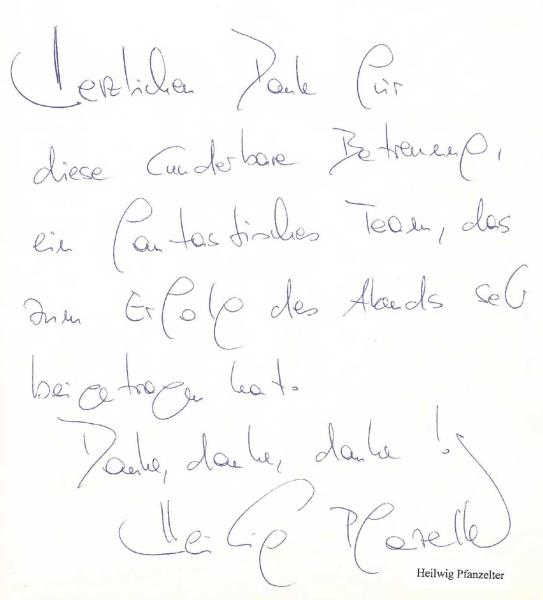 Herzlichen Dank für
diese wunderbare Betreuung,
ein fantastisches Team, das
zum Erfolg des Abends sehr
beigetragen hat.
Danke, danke, danke!
Heilwig Pfanzelter
Heilwig Pfanzelter